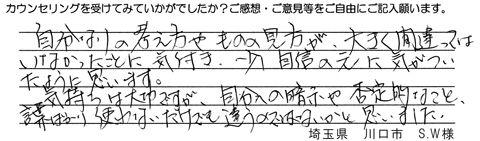 カウンセリングを受けてみていかがでしたか？ご感想・ご意見等をご自由にご記入願います。
自分なりの考え方やものの見方が、大きく間違っては
いなかったことに気付き、少し自信の元に気がつい
たように思います。
気持ちは大切ですが、自分への暗示や否定的なこと、
言葉ばかり使わないだけでも違うのではないかと思いました。
埼玉県 川口市 S.W様